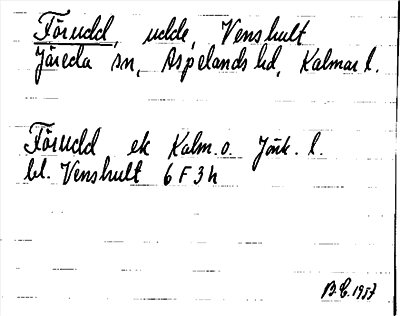 Förudd, udde, Venshult
Järeda sn, Aspelands hd, Kalmar l.
Förudd ek Kalm. o. Jönk. l.
bl. Venshult 6 F 3 h
1957